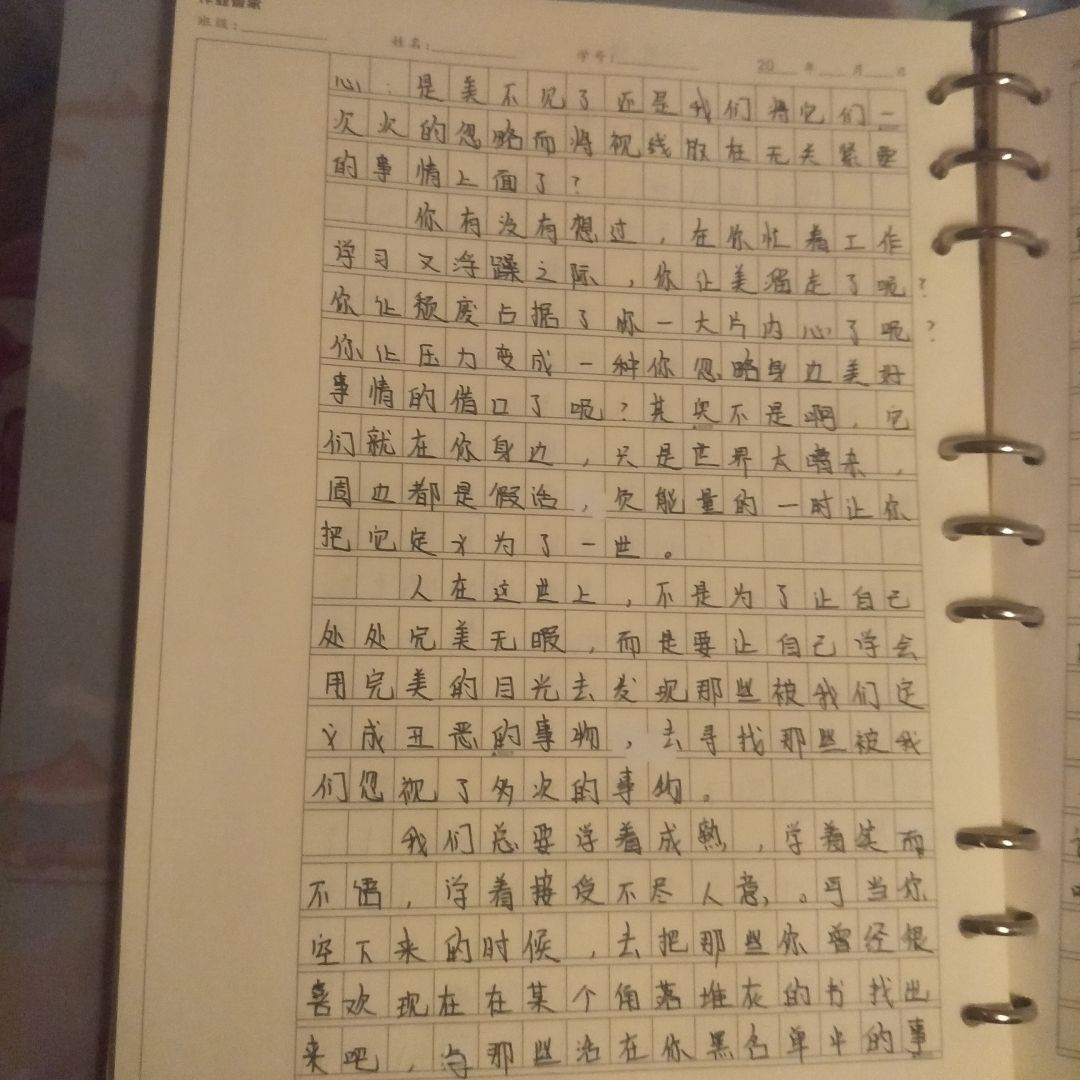 班级:
姓名:
学号:
20 年 月 日
心:是美不见了还是我们将它们一
次次的忽略而将视线放在无关紧要
的事情上面了?
你有没有想过,在你忙着工作
学习又浮躁之际,你让美溜走了呢?
你让颓废占据了你一大片内心了呢?
你让压力变成一种你忽略身边美好
事情的借口了呢?其实不是啊,它
们就在你身边,只是世界太嘈杂,
周边都是假话,负能量的一时让你
把它定义为了一世。
人在这世上,不是为了让自己
处处完美无暇,而是要让自己学会
用完美的目光去发现那些被我们定
义成丑恶的事物,去寻找那些被我
们忽视了多次的事物。
我们总要学着成熟,学着笑而
不语,学着接受不尽人意,。可当你
空下来的时候,去把那些你曾经很
喜欢现在在某个角落堆灰的书找出
来吧,与那些活在你黑名单中的事